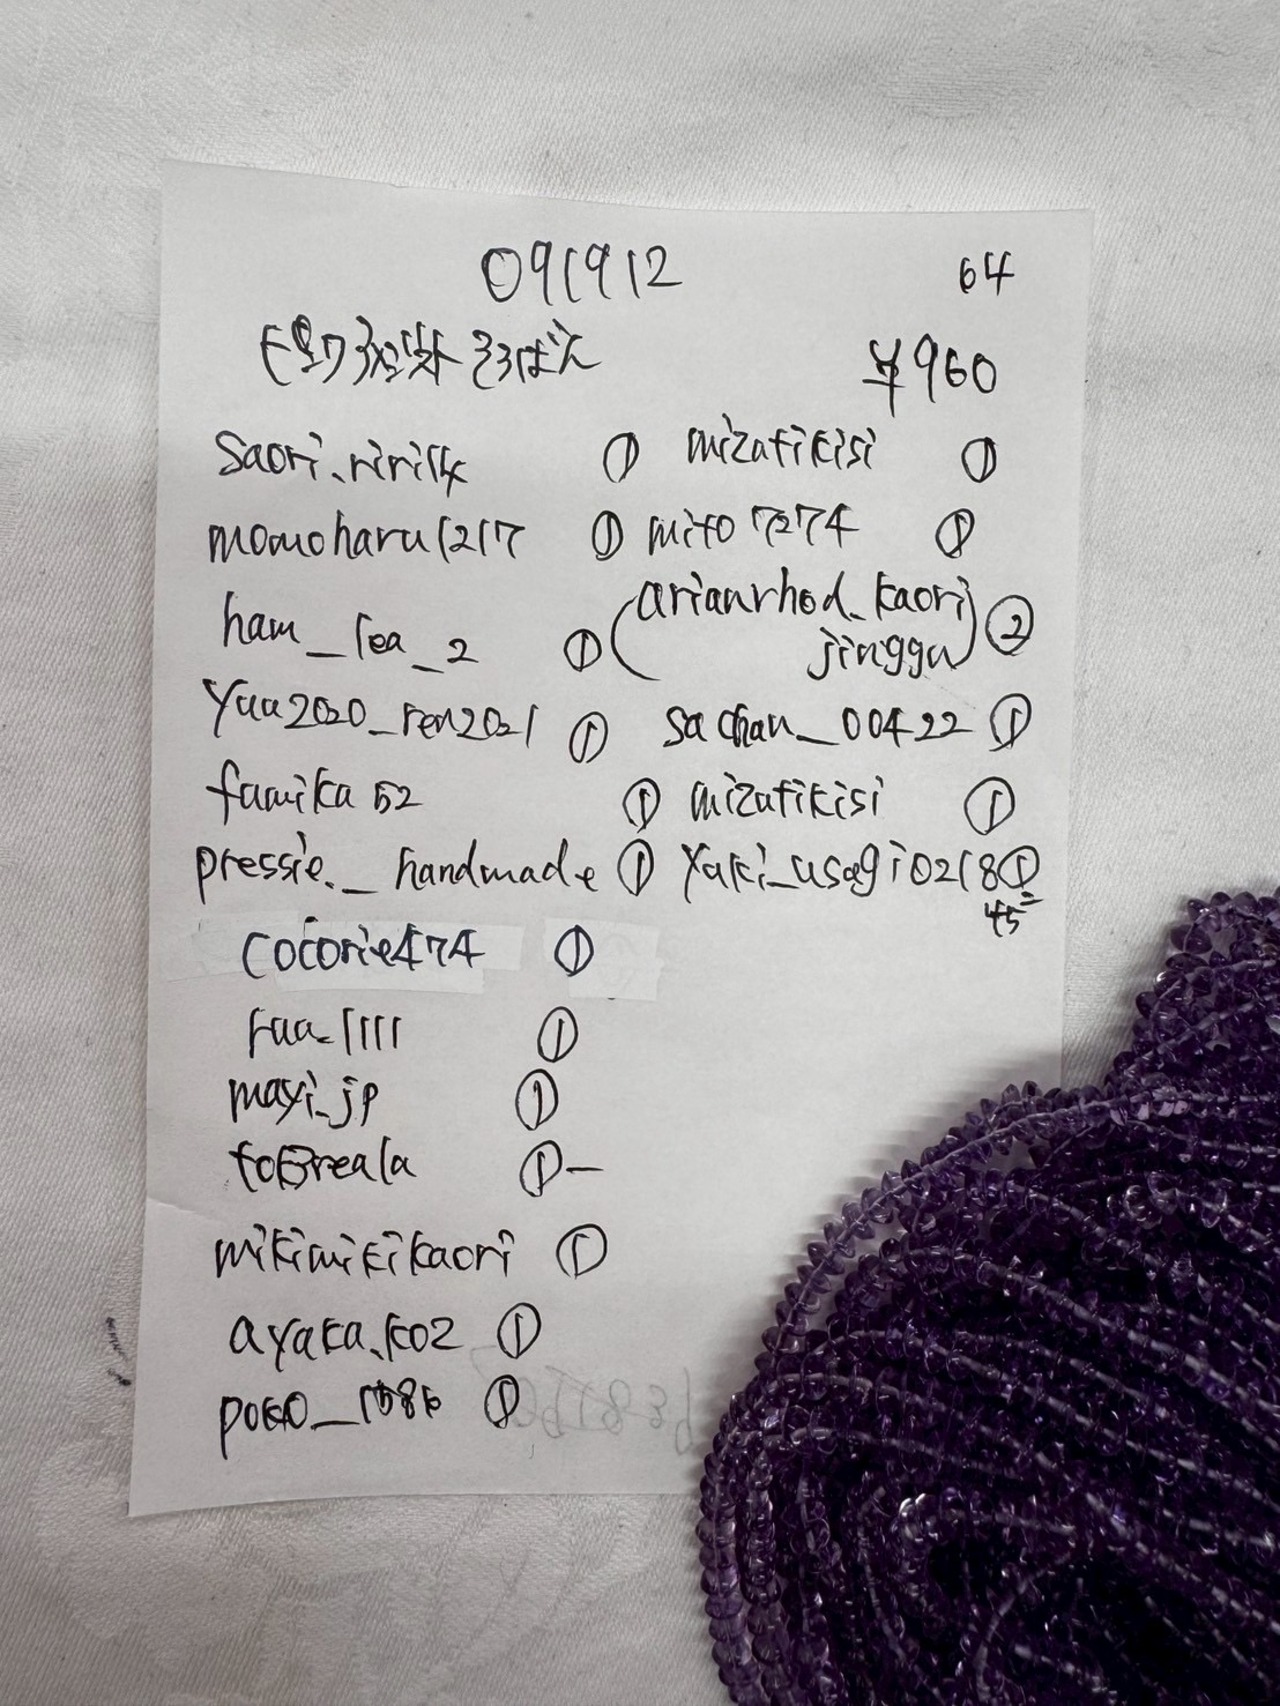 091912 64
そろばん ¥960
saori.riri14 ① mizutikisi ①
momoharu1217 ① mito7274 ①
ham_lea_2 ① (arianrhod_kaori
jinggu) ②
yuu2020_ren2021 ① sachan_00422 ①
fumika52 ① mizutikisi ①
pressie._handmade ① yuki_usagi0218 ①
45
cocorie474 ①
ruu_1111 ①
mayi_jp ①
①–
mikimikikaori ①
ayaka.k02 ①
①